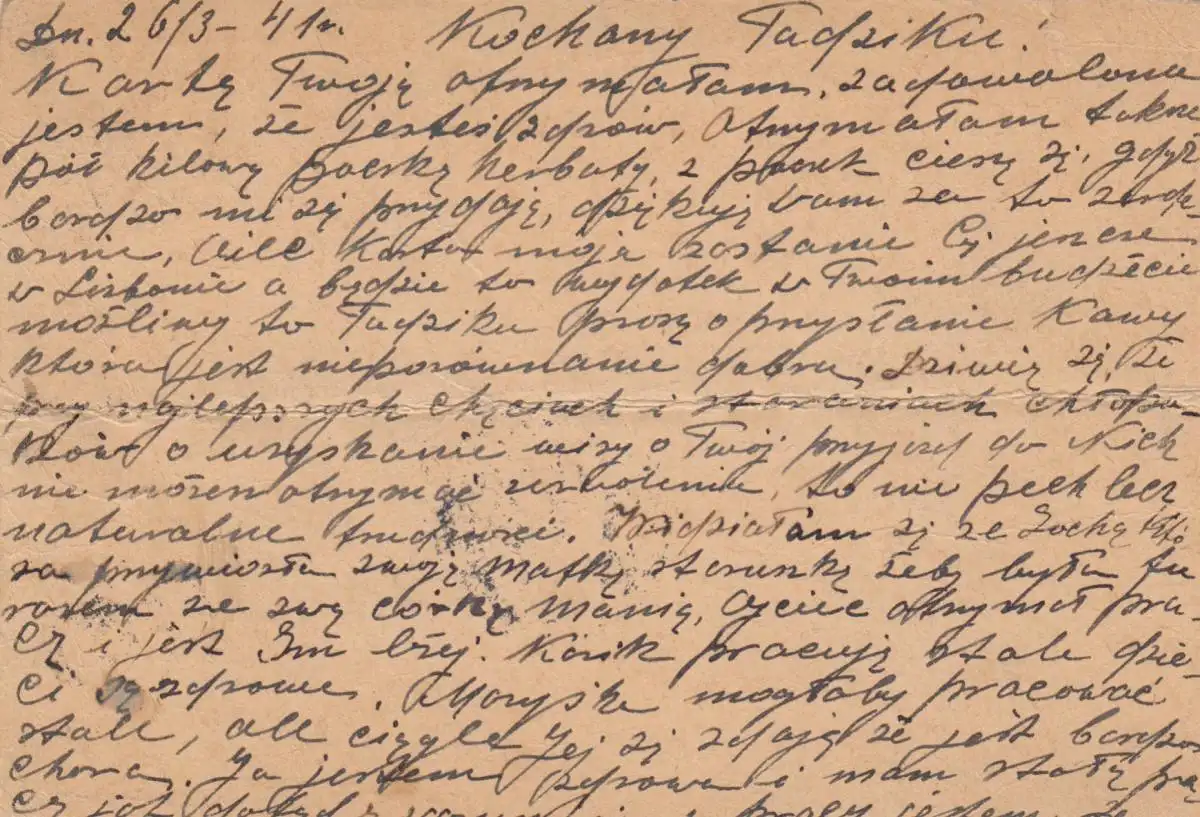 Dn. 26/3–41r. Kochany Tadziku!
Kartę Twoję otrzymałam, zadowolona
jestem, że jesteś zdrów, Otrzymałam także
pół kilową paczkę herbaty, z paczek cieszę się, gdyż
bardzo mi się przydają, dziękuję Wam za to serde-
cznie, kartka moja zostanie Cię jeszcze
w Lizbonie a będzie to wydatek w Twoim budżecie
możliwy to Tadziku proszę o przysłanie Kawy
która jest nieporównanie dobra. Dziwię się, że
przy najlepszych chęciach i staraniach chłopa-
ków o uzyskanie wizy o Twój przyjazd do Nich
nie możesz otrzymać zezwolenia, to nie pech lecz
naturalne trudności. Widziałam się ze Zochą któ-
ra przywiozła swoję Matkę staruszkę żeby była tu
razem ze swą córką Manią, Ojciec otrzymał pra-
cę i jest Im lżej. Kazik pracuję stale dzie-
ci są zdrowe. Maryśka mogłaby pracować
stale, ale ciągle Jej się zdaję że jest bardzo
chora. Ja jestem zdrowa i mam stałą pra-
cę jak dotąd